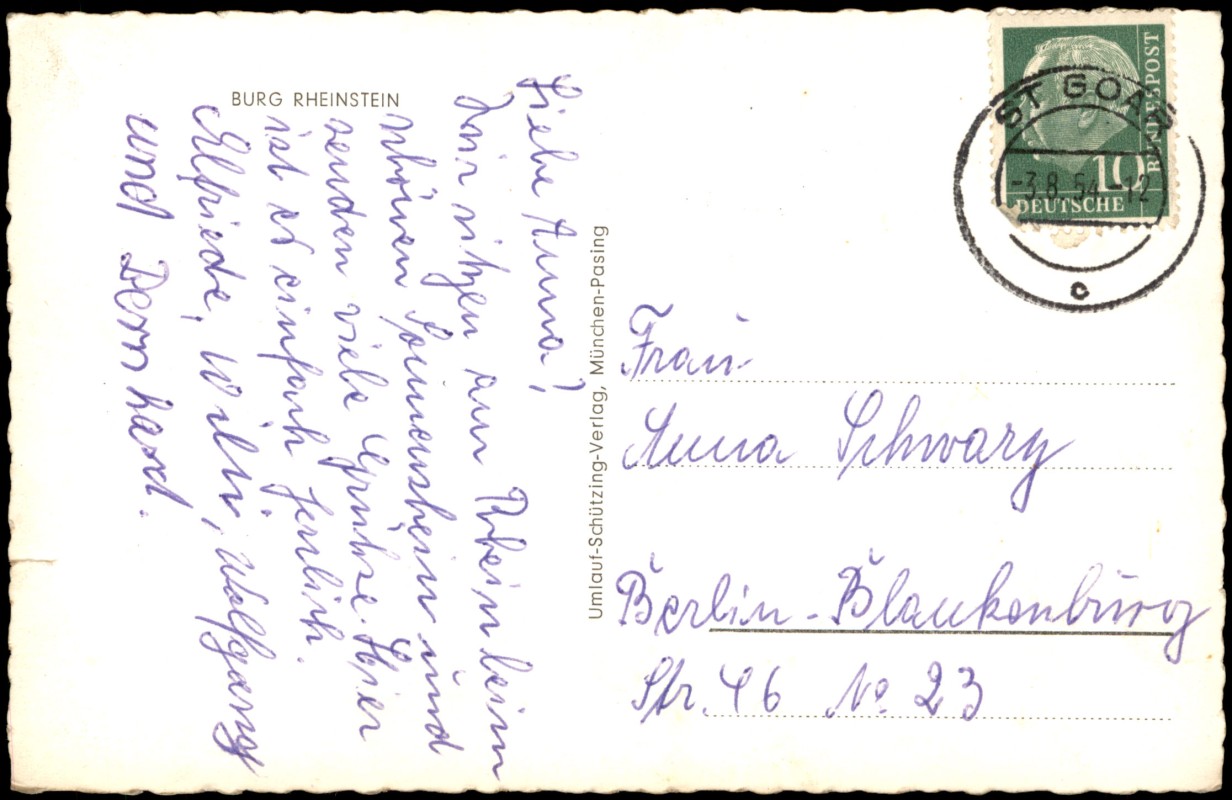 BURG RHEINSTEIN
Liebe Anna!
Wir sitzen am Rhein beim
schönen Sonnenschein und
senden viele Grüße. Hier
ist es einfach herrlich.
Elfriede, Willi, Wolfgang
und Bernhard.
Umlauf-Schützing-Verlag, München-Pasing
DEUTSCHE
BUNDESPOST
10
ST GOAR
-3.8.54-12
c
Frau
Anna Schwarz
Berlin-Blankenburg
Str. 46 No 23